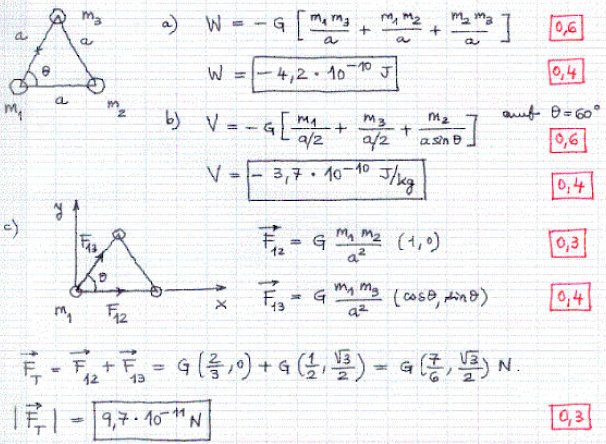 m₃
a a
θ
m₁ a m₂
a) W = - G [ m₁ m₃ / a + m₁ m₂ / a + m₂ m₃ / a ] 0,6
W = - 4,2 · 10⁻¹⁰ J 0,4
b) V = - G [ m₁ / a/2 + m₃ / a/2 + m₂ / a sin θ ] θ = 60° 0,6
V = - 3,7 · 10⁻¹⁰ J/kg 0,4
c) y
F₁₃
θ
m₁ F₁₂ x
F₁₂ = G m₁ m₂ / a² (1,0) 0,3
F₁₃ = G m₁ m₃ / a² (cosθ, sinθ) 0,4
F_T = F₁₂ + F₁₃ = G (2/3, 0) + G (1/2, √3/2) = G (7/6, √3/2) N.
|F_T| = 9,7 · 10⁻¹¹ N 0,3